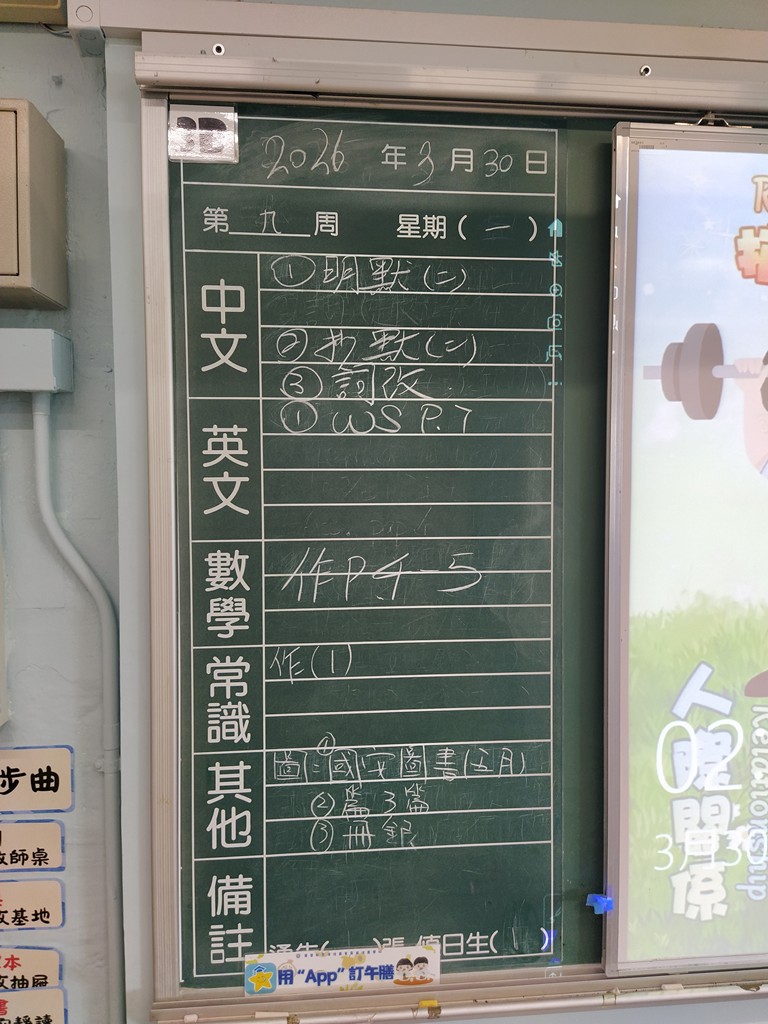 3D
2026 年 3 月 30 日
第 九 周 星期 ( 一 )
中文
① 明默(二)
② 扚默(二)
③ 詞改
英文
① WS P.7
數學
作P.4-5
常識
作(1)
其他
圖：①國安圖書(五月)
② 篇 3篇
③ 冊銀
備註
通告( )張 值日生( 1 )
用“App”訂午膳
人際關係
Relationship
02
3月30
步曲
教師桌
基地
本
抽屜
書